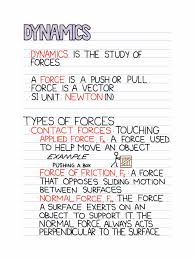 DYNAMICS
DYNAMICS IS THE STUDY OF
FORCES
A FORCE IS A PUSH OR PULL
FORCE IS A VECTOR
SI UNIT: NEWTON (N)
TYPES OF FORCES
CONTACT FORCES TOUCHING
APPLIED FORCE, Fₐ A FORCE USED
TO HELP MOVE AN OBJECT
EXAMPLE
PUSHING A BOX
FORCE OF FRICTION, Fₓ A FORCE
THAT OPPOSES SLIDING MOTION
BETWEEN SURFACES
NORMAL FORCE, Fₙ THE FORCE
A SURFACE EXERTS ON AN
OBJECT TO SUPPORT IT. THE
NORMAL FORCE ALWAYS ACTS
PERPENDICULAR TO THE SURFACE.